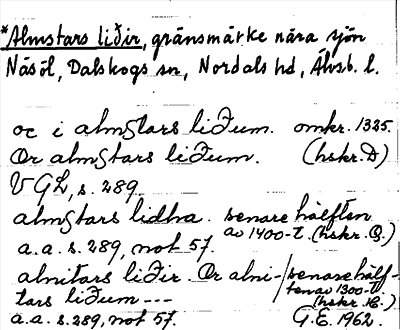 *Almstars liðir, gränsmärke nära sjön
Näsöl, Dalskogs sn, Nordals hd, Älvsb. l.
oc i almstars liðum. omkr. 1325.
Or almstars liðum. (hskr. D)
VGL, s. 289.
almstars lidha. senare hälften
av 1400-t. (hskr. B.)
a.a. s. 289, not 57.
alnitars liðir. Or alni-/senare hälf-
tars liðum --- ten av 1300-t
(hskr. K.)
a.a. s. 289, not 57. G.E. 1962.